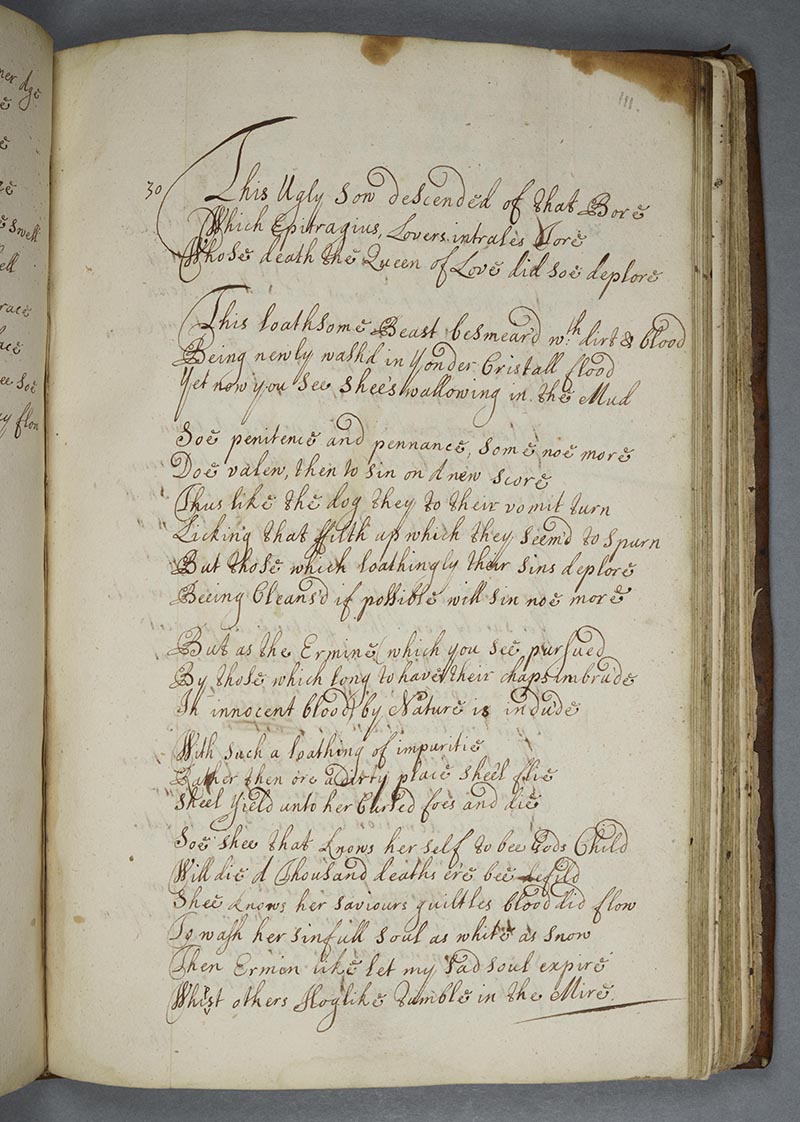 mer dye
e swell
ell
race
ace
ee soe
y flow
111.
30
This Ugly Sow descended of that Bore
Which Epitragius, Lovers intrales Tore
Whose death the Queen of Love did soe deplore
This loathsome Beast besmear'd wth dirt & blood
Being newly washd in Yonder Cristall flood
Yet now you see shee's wallowing in the Mud
Soe penitence and pennance, some noe more
Doe valew, then to sin on a new score
Thus like the dog they to their vomit turn
Licking that ffilth up which they seem'd to spurn
But those which loathingly their sins deplore
Beeing Cleans'd if possible will sin noe more
But as the Ermine (which you see pursued
By those which long to have their chaps imbrude
In innocent blood) by Nature is indude
With such a loathing of impuritie
Rather then ore a dirty place shee'l flie
Shee'l Yield unto her Cursed foes and die
Soe shee that knows her self to bee Gods Child
Will die a Thousand deaths e're bee defild
Shee knows her saviours guiltles blood did flow
To wash her sinfull soul as white as snow
Then Ermin like let my sad soul expire
Whilst others Hoglike tumble in the Mire.